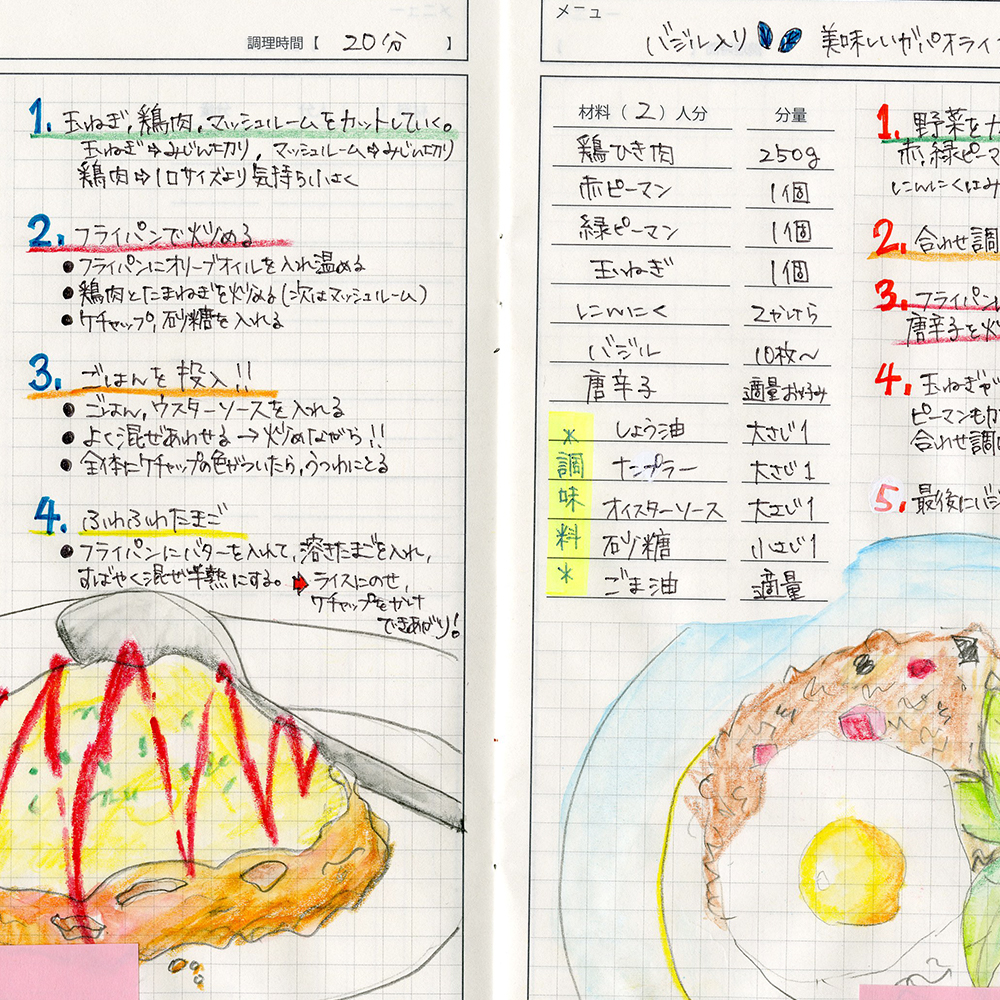 調理時間【 20分 】
1. 玉ねぎ,鶏肉,マッシュルームをカットしていく。
玉ねぎ⇨みじん切り, マッシュルーム⇨みじん切り
鶏肉⇨1口サイズより気持ち小さく
2. フライパンで炒める
●フライパンにオリーブオイルを入れ温める
●鶏肉とたまねぎを炒める(次はマッシュルーム)
●ケチャップ,砂糖を入れる
3. ごはんを投入!!
●ごはん,ウスターソースを入れる
●よく混ぜあわせる→炒めながら!!
●全体にケチャップの色がついたら,うつわにとる
4. ふわふわたまご
●フライパンにバターを入れて,溶きたまごを入れ,
すばやく混ぜ半熟にする。➡ライスにのせ,
ケチャップをかけ
できあがり!
メニュ
バジル入り 美味しいガパオライ
材料(2)人分 分量
鶏ひき肉 250g
赤ピーマン 1個
緑ピーマン 1個
玉ねぎ 1個
にんにく 2かけら
バジル 10枚〜
唐辛子 適量お好み
*調味料*
しょう油 大さじ1
ナンプラー 大さじ1
オイスターソース 大さじ1
砂糖 小さじ1
ごま油 適量
1. 野菜をカ
赤,緑ピーマ
にんにくはみ
2. 合わせ調
3. フライパンに
唐辛子を火
4. 玉ねぎが
ピーマンもカ
合わせ調
5. 最後にバジ